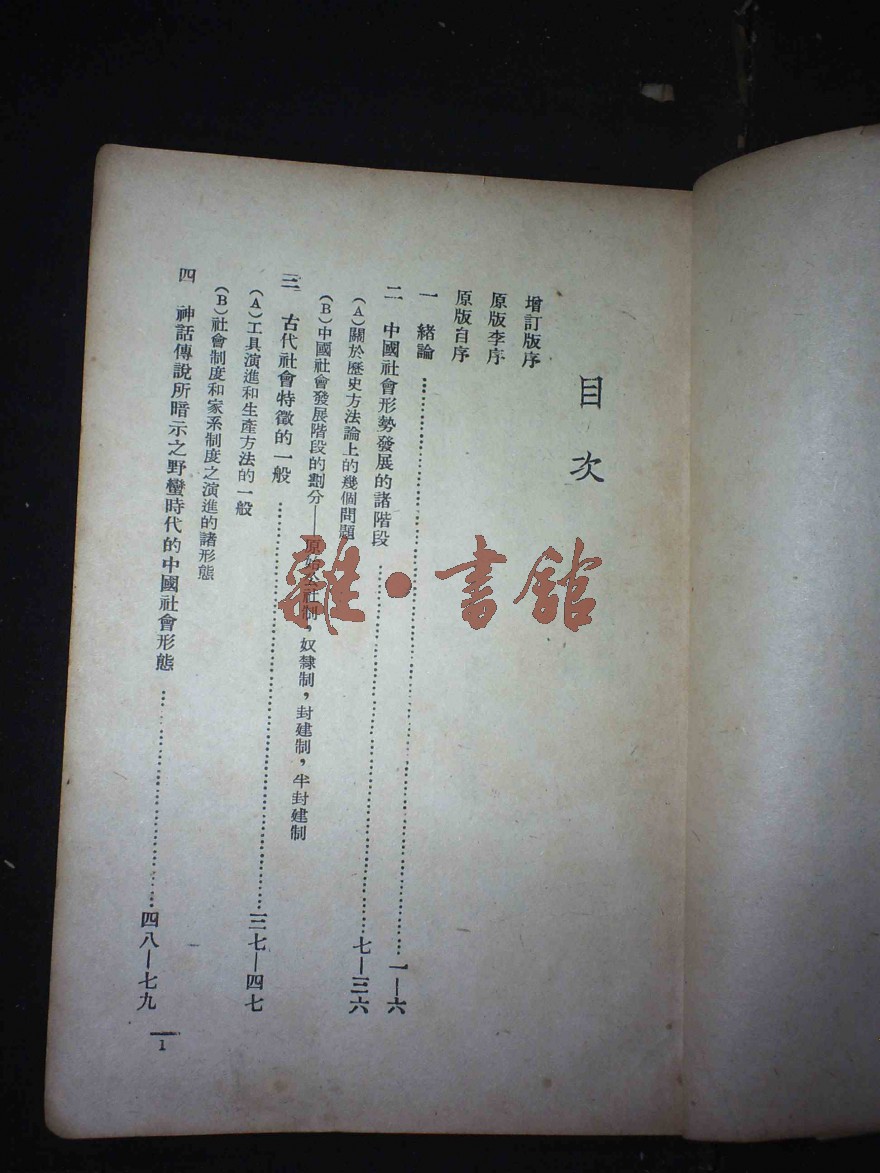 目次
增訂版序
原版李序
原版自序
一 緒論……一—六
二 中國社會形勢發展的諸階段……七—三六
(A)關於歷史方法論上的幾個問題
(B)中國社會發展階段的劃分——原始公社制，奴隸制，封建制，半封建制
三 古代社會特徵的一般……三七—四七
(A)工具演進和生產方法的一般
(B)社會制度和家系制度之演進的諸形態
四 神話傳說所暗示之野蠻時代的中國社會形態……四八—七九
1
雜·書館